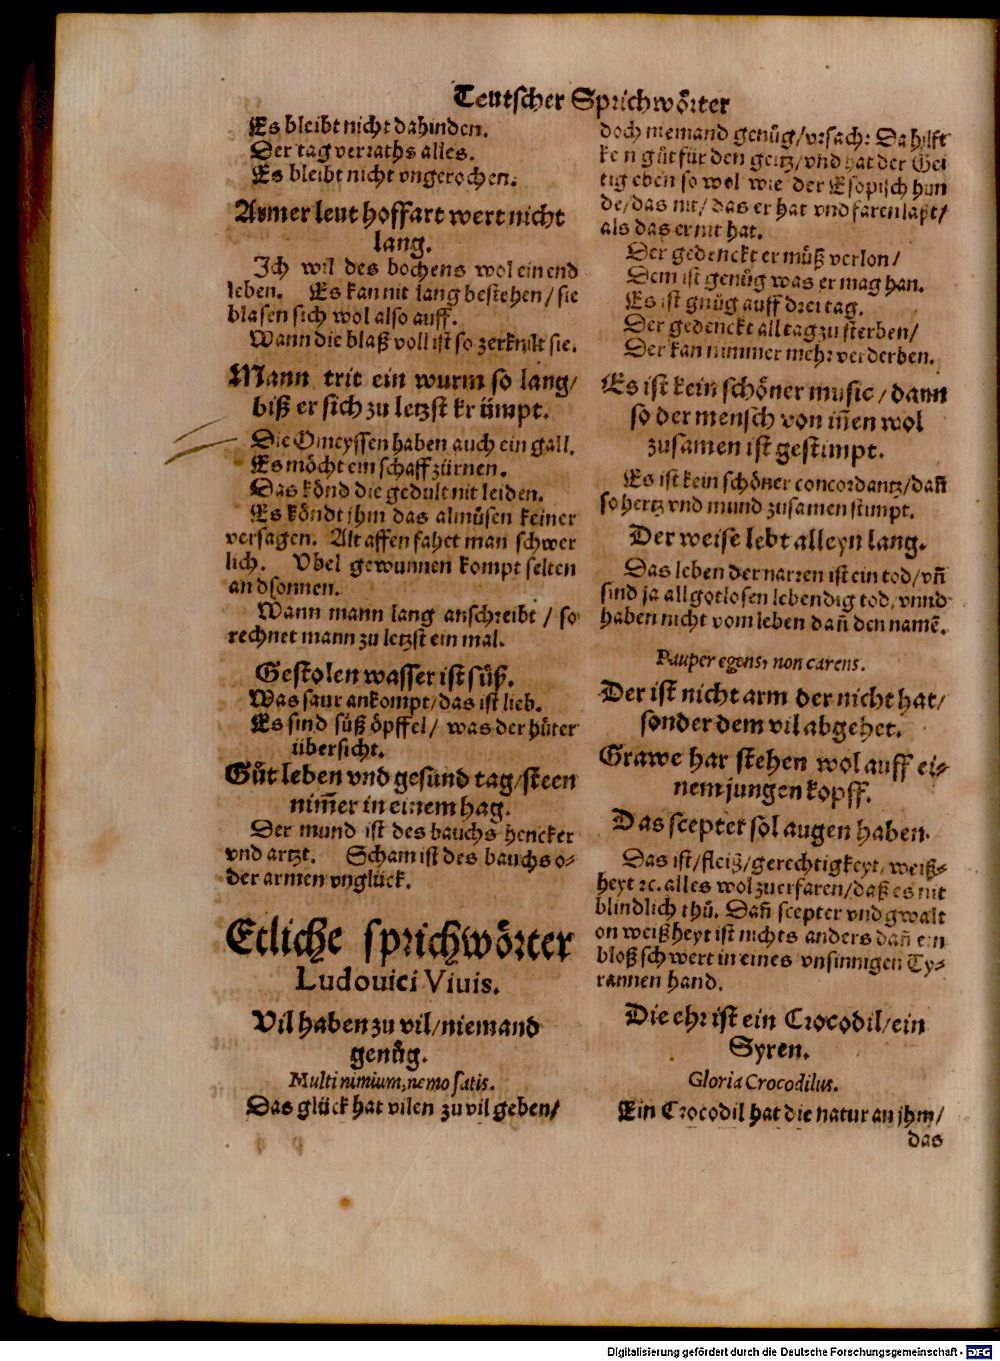 Teutscher Sprichwörter
Es bleibt nicht dahinden.
Der tag verraths alles.
Es bleibt nicht vngerochen.
Armer leut hoffart wert nicht
lang.
Ich wil des bochens wol ein end
leben. Es kan nit lang bestehen/ sie
blasen sich wol also auff.
Wann die blaß voll ist so zerknilt sie.
Mann trit ein wurm so lang/
biß er sich zu letzst krümpt.
Die Omeyssen haben auch ein gall.
Es möcht ein schaff zürnen.
Das könd die gedult nit leiden.
Es köndt jhm das almůsen keiner
versagen. Alt affen fahet man schwer
lich. Vbel gewunnen kompt selten
an dsonnen.
Wann mann lang anschreibt / so
rechnet mann zu letzst ein mal.
Gestolen wasser ist süß.
Was saur ankompt/das ist lieb.
Es sind süß öpffel/ was der hüter
übersicht.
Gůt leben vnd gesund tag/steen
nim̃er in einem hag.
Der mund ist des bauchs hencker
vnd artzt. Scham ist des bauchs o-
der armen vnglück.
Etliche sprichwörter
Ludouici Viuis.
Vil haben zu vil/niemand
genůg.
Multi nimium, nemo satis.
Das glück hat vilen zu vil geben/
doch niemand genůg/vrsach: Da hilfft
kein gůt für den geitz/vnd hat der Gei
tig eben so wol wie der Esopisch hun
de/das nit/ das er hat vnd faren laßt/
als das er nit hat.
Der gedenckt er müß verlon/
Dem ist genůg was er mag han.
Es ist gnůg auff drei tag.
Der gedenckt all tag zu sterben/
Der kan nimmer mehr verderben.
Es ist kein schöner music / dann
so der mensch von iñen wol
zusamen ist gestimpt.
Es ist kein schöner concordantz/dañ
so hertz vnd mund zusamen stimpt.
Der weise lebt alleyn lang.
Das leben der narren ist ein tod/vñ
sind ja all gotlosen lebendig tod, vnnd
haben nicht vom leben dañ den namẽ.
Pauper egens, non carens.
Der ist nicht arm der nicht hat/
sonder dem vil abgehet.
Grawe har stehen wol auff ei-
nem jungen kopff.
Das scepter sol augen haben.
Das ist/fleiß/gerechtigkeyt, weiß-
heyt ꝛc. alles wol zu erfaren/daß es nit
blindlich thů. Dañ scepter vnd gwalt
on weißheyt ist nichts anders dañ ein
bloß schwert in eines vnsinnigen Ty-
rannen hand.
Die ehr ist ein Crocodil/ein
Syren.
Gloria Crocodilus.
Ein Crocodil hat die natur an jhm/
das
Digitalisierung gefördert durch die Deutsche Forschungsgemeinschaft - DFG